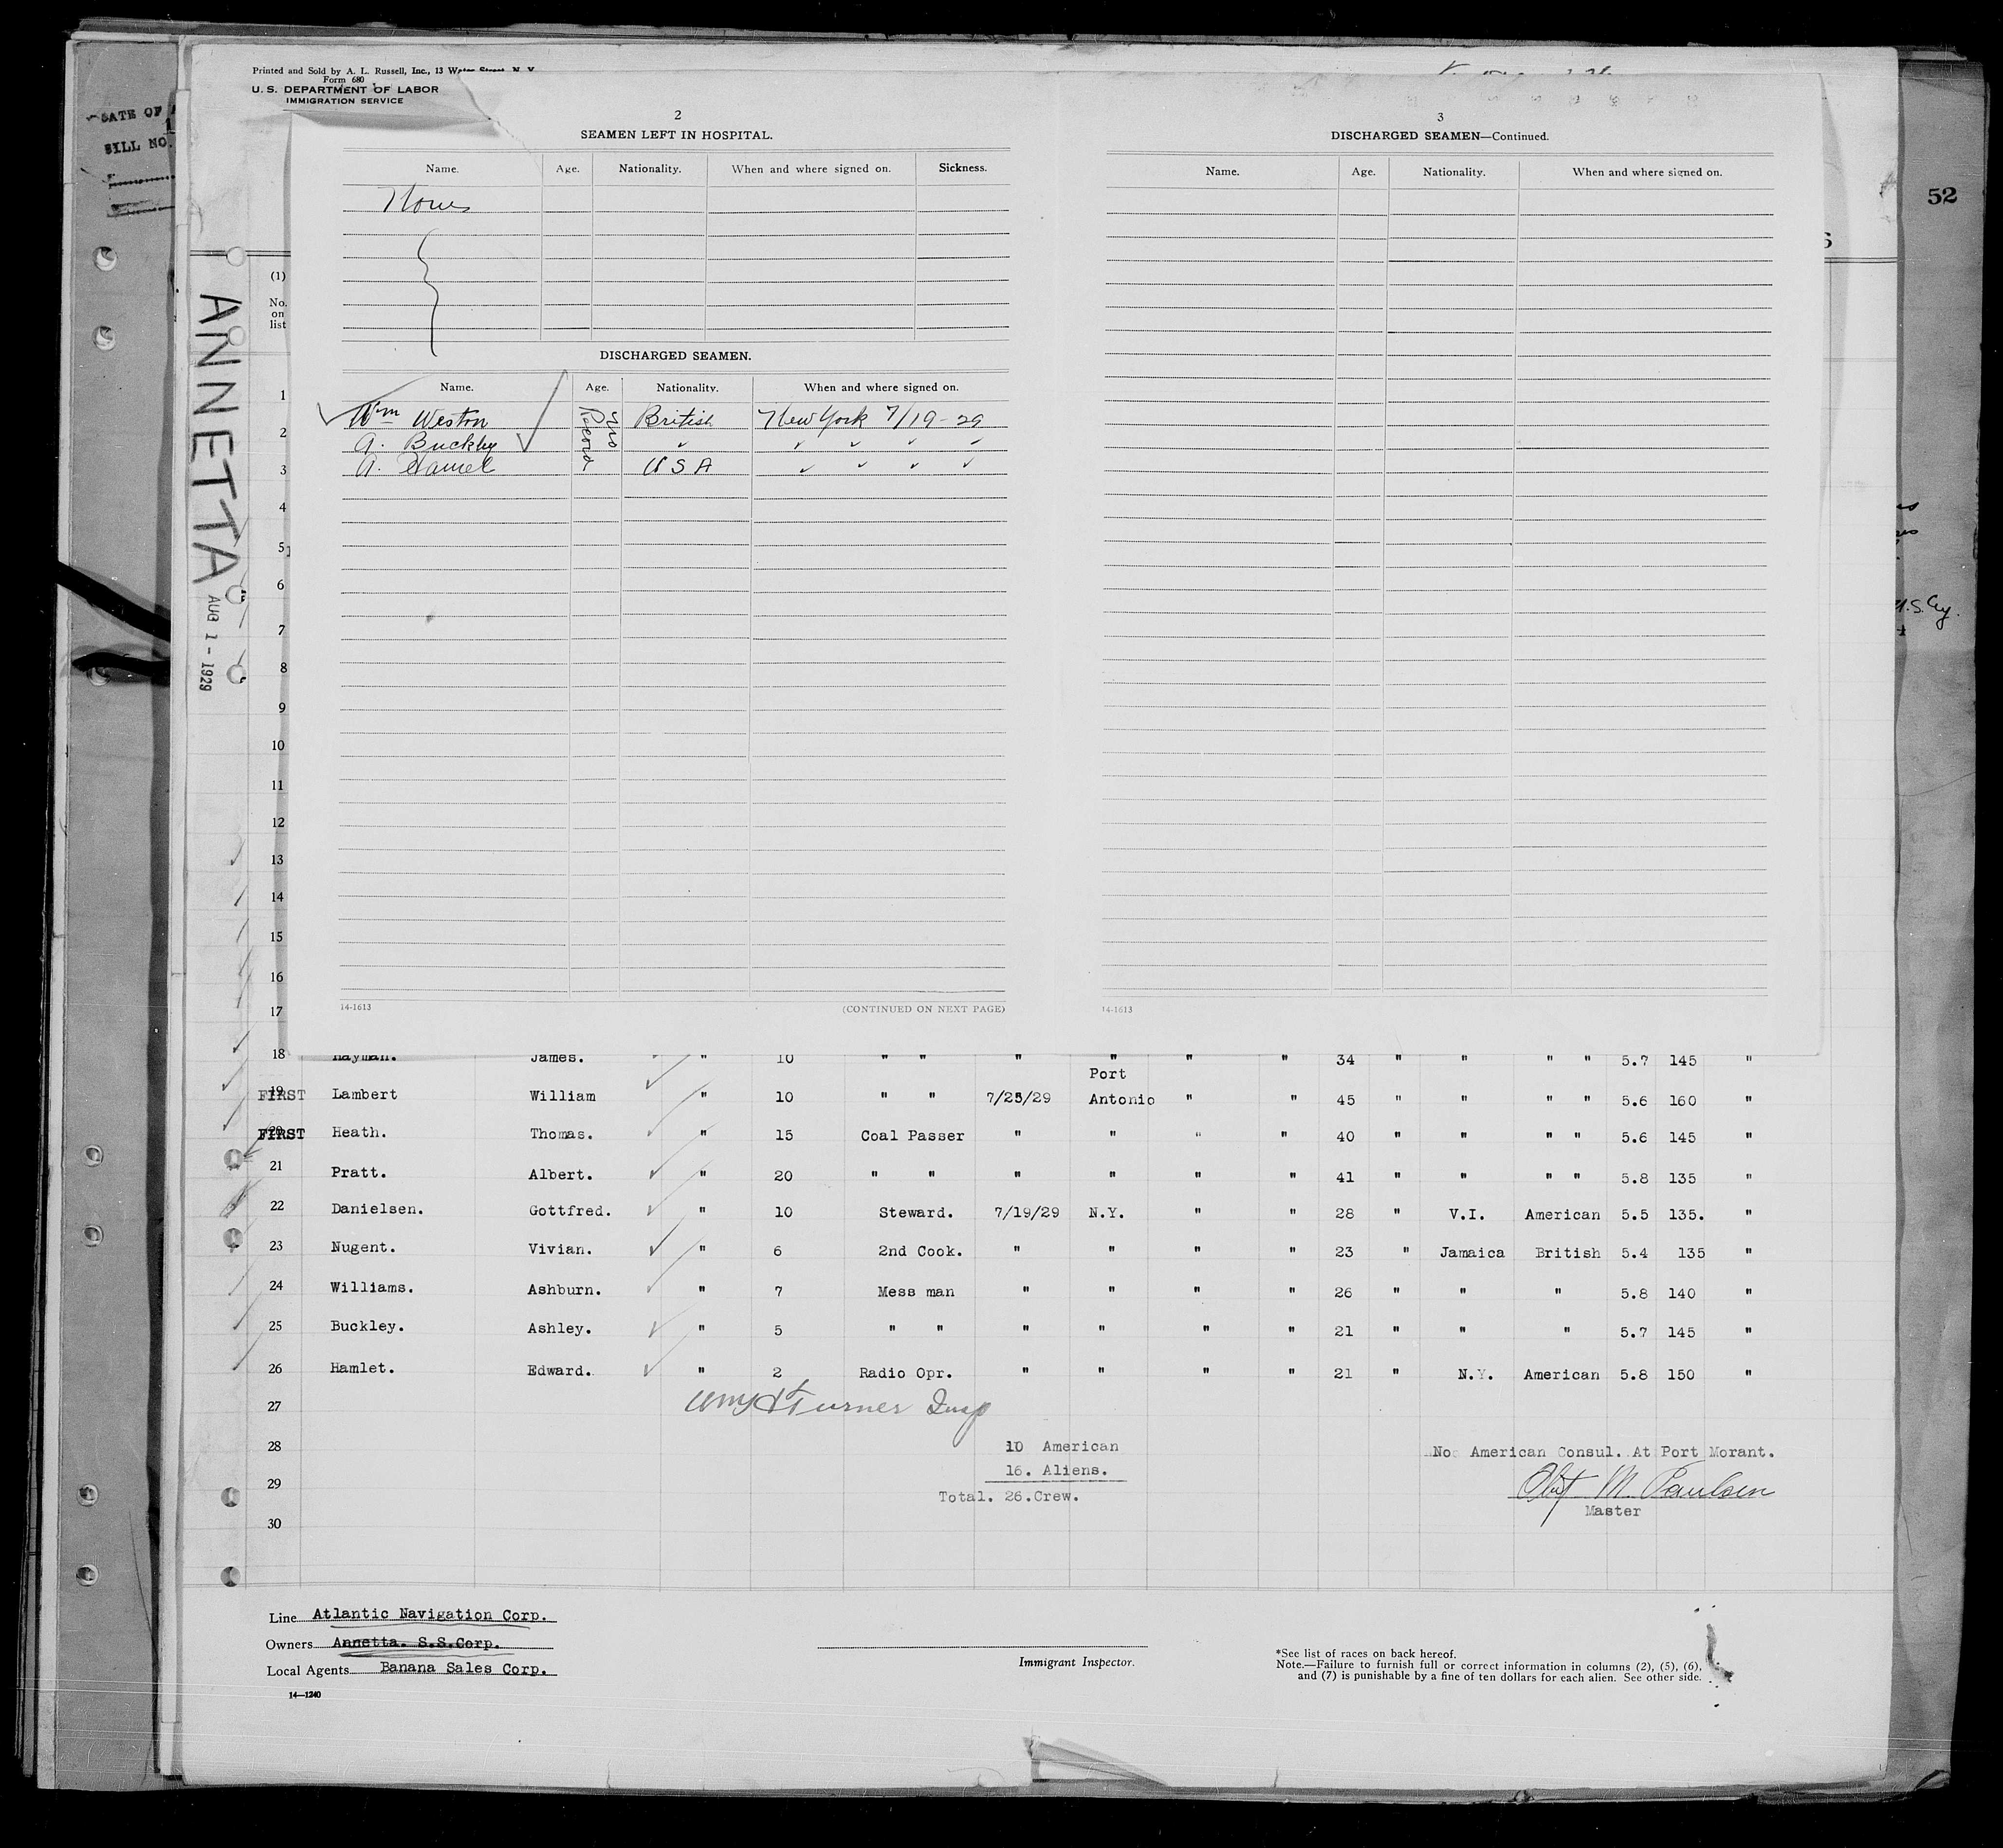 Printed and Sold by A. L. Russell, Inc., 13 Water Street, N. Y.
Form 680
U. S. DEPARTMENT OF LABOR
IMMIGRATION SERVICE
DATE OF
BILL NO.
52
ANNETTA
AUG 1 - 1929
(1)
No.
on
list
2
SEAMEN LEFT IN HOSPITAL.
Name. Age. Nationality. When and where signed on. Sickness.
None
DISCHARGED SEAMEN.
Name. Age. Nationality. When and where signed on.
Wm Weston British New York 7/19-29
A. Buckley " " " " "
A. Daniel U S A " " " "
14-1613 (CONTINUED ON NEXT PAGE)
3
DISCHARGED SEAMEN—Continued.
Name. Age. Nationality. When and where signed on.
14-1613
1
2
3
4
5
6
7
8
9
10
11
12
13
14
15
16
17
18 Hayman. James. " 10 " " " " " " 34 " " " " 5.7 145 "
19 FIRST Lambert William " 10 " " 7/25/29 Port Antonio " " 45 " " " " 5.6 160 "
20 FIRST Heath. Thomas. " 15 Coal Passer " " " " 40 " " " " 5.6 145 "
21 Pratt. Albert. " 20 " " " " " " 41 " " " " 5.8 135 "
22 Danielsen. Gottfred. " 10 Steward. 7/19/29 N.Y. " " 28 " V.I. American 5.5 135. "
23 Nugent. Vivian. " 6 2nd Cook. " " " " 23 " Jamaica British 5.4 135
24 Williams. Ashburn. " 7 Mess man " " " " 26 " " " 5.8 140 "
25 Buckley. Ashley. " 5 " " " " " " 21 " " " 5.7 145 "
26 Hamlet. Edward. " 2 Radio Opr. " " " " 21 " N.Y. American 5.8 150 "
27 Turner Insp
28 10 American No American Consul. At Port Morant.
16. Aliens.
29 Total. 26.Crew. M. Paulsen
Master
30
Line Atlantic Navigation Corp.
Owners Annetta. S.S.Corp.
Local Agents Banana Sales Corp.
14—1240
Immigrant Inspector.
*See list of races on back hereof.
Note.—Failure to furnish full or correct information in columns (2), (5), (6),
and (7) is punishable by a fine of ten dollars for each alien. See other side.